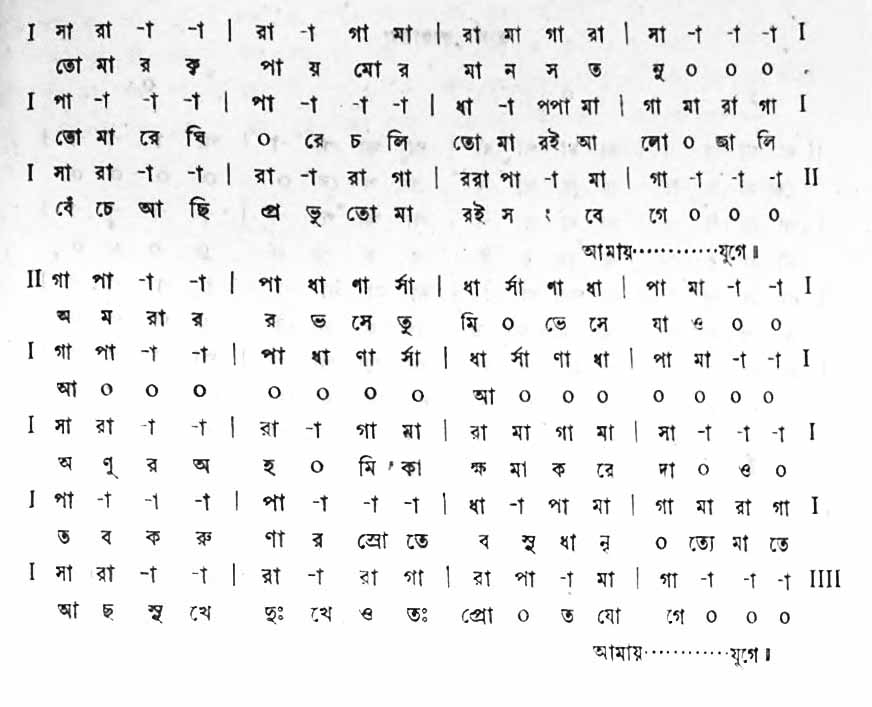 I সা রা -া -া | রা -া গা মা | রা মা গা রা | সা -া -া -া I
তো মা র কৃ পা য় মো র মা ন স ত নু ০ ০ ০
I পা -া -া -া | পা -া -া -া | ধা -া পপা মা | গা মা রা গা I
তো মা রে ঘি ০ রে চ লি তো মা রই আ লো ০ জ্বা লি
I সা রা -া -া | রা -া রা গা | ররা পা -া মা | গা -া -া -া II
বেঁ চে আ ছি প্র ভু তো মা রই স ং বে গে ০ ০ ০
আমায়············যুগে॥
II গা পা -া -া | পা ধা ণা র্সা | ধা র্সা ণা ধা | পা মা -া -া I
অ ম রা র র ভ সে তু মি ০ ভে সে যা ও ০ ০
I গা পা -া -া | পা ধা ণা র্সা | ধা র্সা ণা ধা | পা মা -া -া I
আ ০ ০ ০ ০ ০ ০ ০ আ ০ ০ ০ ০ ০ ০ ০
I সা রা -া -া | রা -া গা মা | রা মা গা মা | সা -া -া -া I
অ ণু র অ হ ০ মি কা ক্ষ মা ক রে দা ০ ও ০
I পা -া -া -া | পা -া -া -া | ধা -া পা মা | গা মা রা গা I
ত ব ক রু ণা র স্রো তে ব সু ধা নু ০ তো মা তে
I সা রা -া -া | রা -া রা গা | রা পা -া মা | গা -া -া -া IIII
আ ছ সু খে দুঃ খে ও তঃ প্রো ০ ত যো গে ০ ০ ০
আমায়············যুগে॥